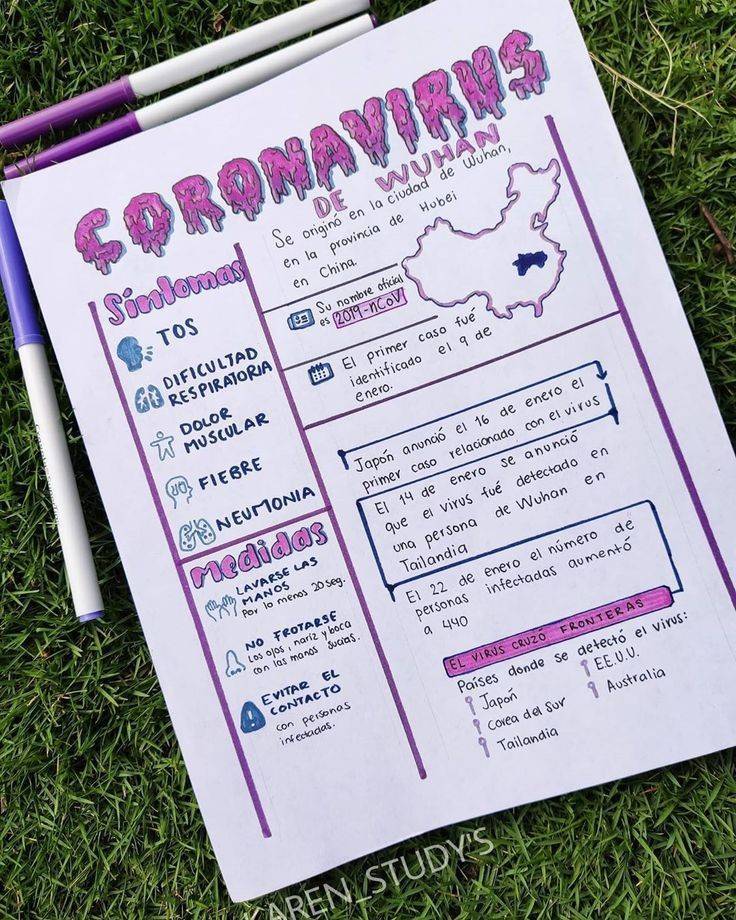 CORONAVIRUS
DE WUHAN
Se originó en la ciudad de Wuhan,
en la provincia de Hubei
en China.
Su nombre oficial
es 2019-nCoV
El primer caso fué
identificado el 9 de
enero.
Síntomas
TOS
DIFICULTAD
RESPIRATORIA
DOLOR
MUSCULAR
FIEBRE
NEUMONIA
Medidas
LAVARSE LAS
MANOS
Por lo menos 20 seg.
NO FROTARSE
Los ojos, nariz y boca
con las manos sucias.
EVITAR EL
CONTACTO
con personas
infectadas.
Japón anunció el 16 de enero el
primer caso relacionado con el virus
El 14 de enero se anunció
que el virus fué detectado en
una persona de Wuhan en
Tailandia
El 22 de enero el número de
personas infectadas aumentó
a 440
EL VIRUS CRUZÓ FRONTERAS
Países donde se detectó el virus:
Japón
Corea del Sur
Tailandia
EE.U.U.
Australia
AREN_STUDY'S